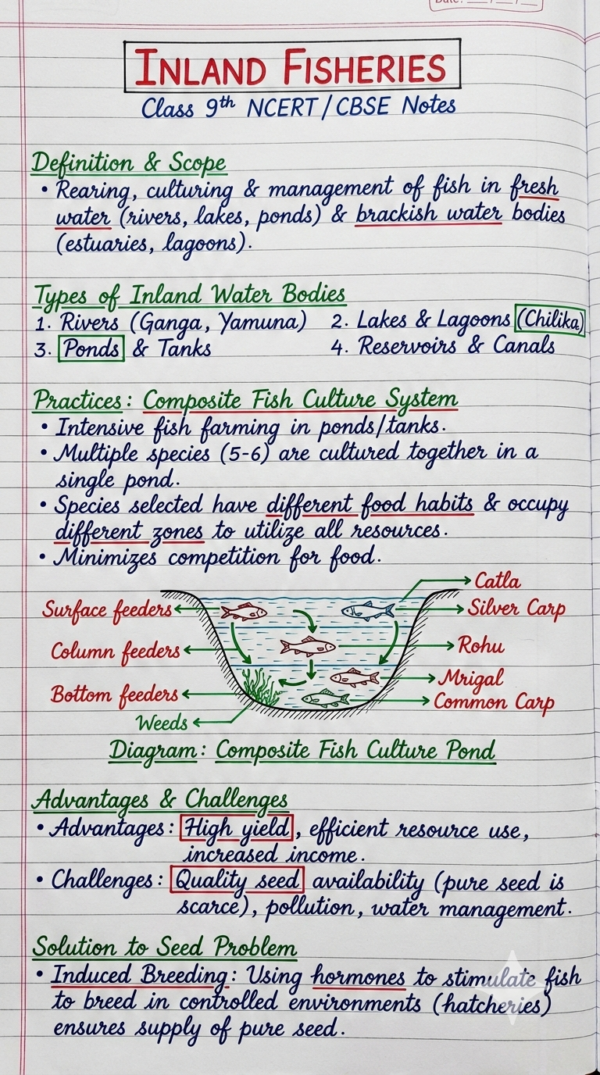 Date: __/__/__
INLAND FISHERIES
Class 9th NCERT/CBSE Notes
Definition & Scope
• Rearing, culturing & management of fish in fresh
water (rivers, lakes, ponds) & brackish water bodies
(estuaries, lagoons).
Types of Inland Water Bodies
1. Rivers (Ganga, Yamuna) 2. Lakes & Lagoons (Chilika)
3. Ponds & Tanks 4. Reservoirs & Canals
Practices: Composite Fish Culture System
• Intensive fish farming in ponds/tanks.
• Multiple species (5-6) are cultured together in a
single pond.
• Species selected have different food habits & occupy
different zones to utilize all resources.
• Minimizes competition for food.
Catla
Surface feeders Silver Carp
Column feeders Rohu
Mrigal
Bottom feeders Common Carp
Weeds
Diagram: Composite Fish Culture Pond
Advantages & Challenges
• Advantages: High yield, efficient resource use,
increased income.
• Challenges: Quality seed availability (pure seed is
scarce), pollution, water management.
Solution to Seed Problem
• Induced Breeding: Using hormones to stimulate fish
to breed in controlled environments (hatcheries)
ensures supply of pure seed.